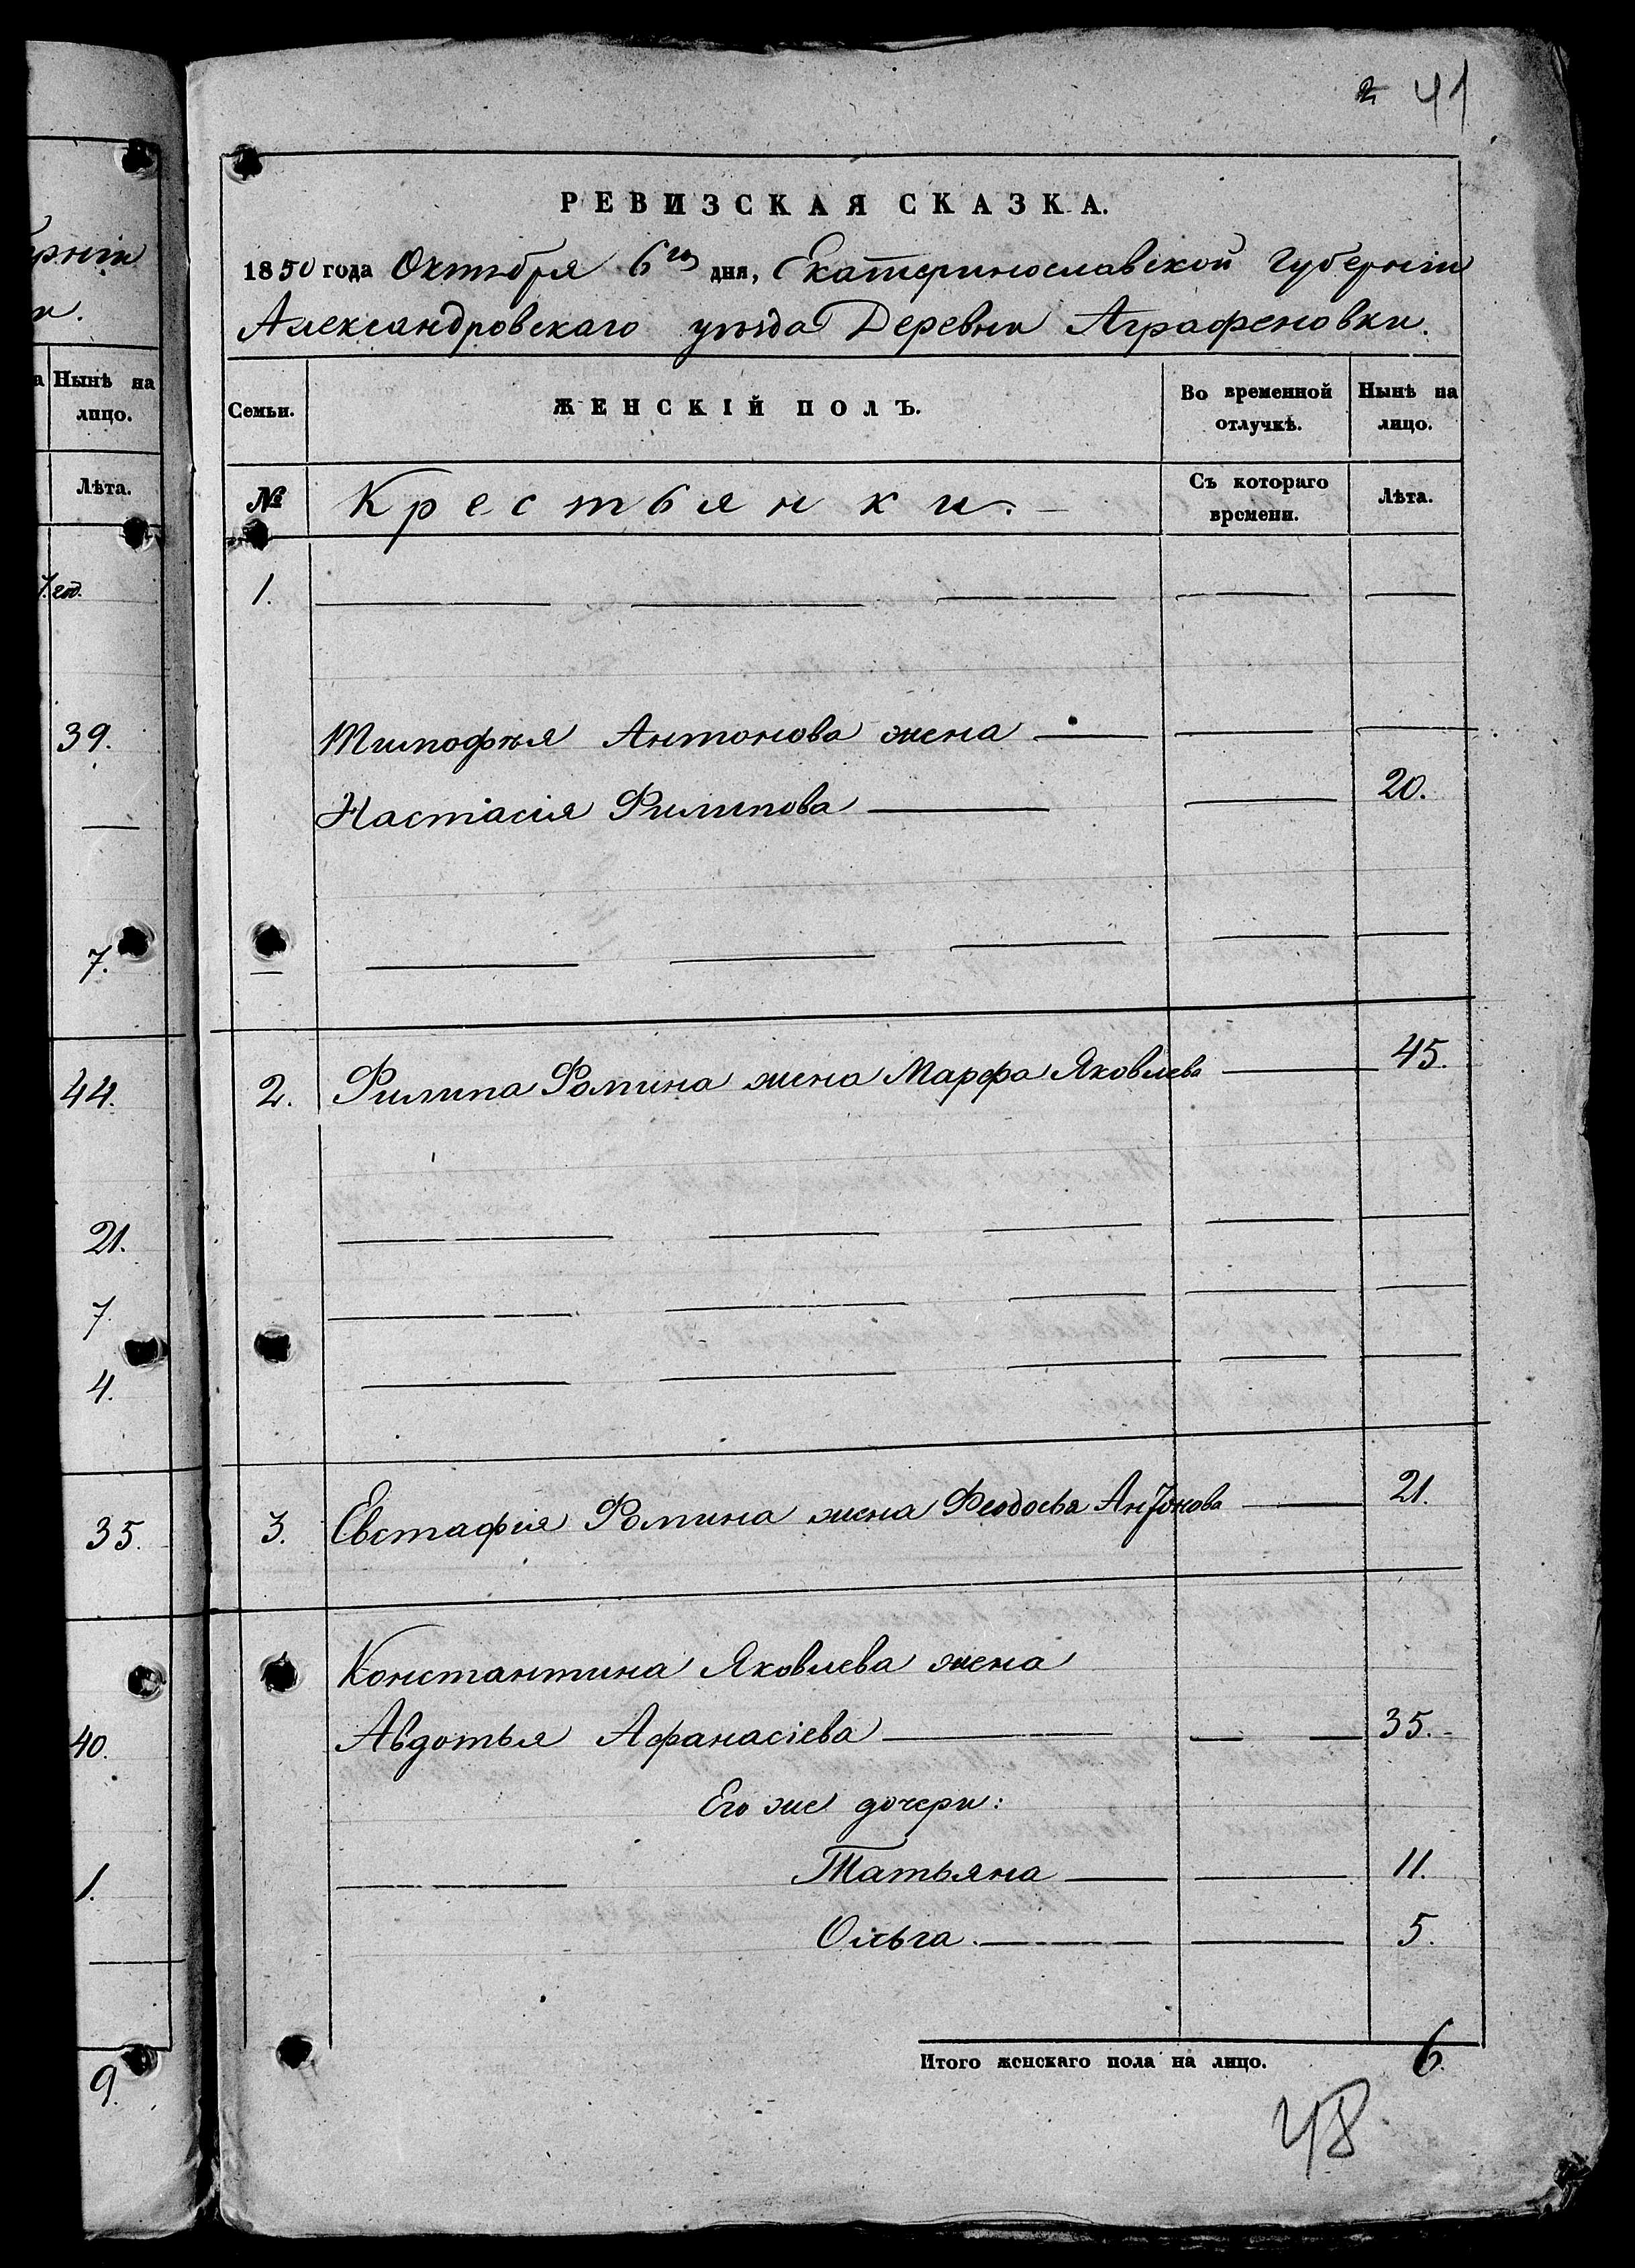 41
рнiи
и.
РЕВИЗСКАЯ СКАЗКА.
1850 года Октября 6го дня, Екатеринославской Губернiи
Александровскаго уѣзда Деревни Аграфеновки.
а Нынѣ на лицо.
Лѣта.
Семьи.
ЖЕНСКIЙ ПОЛЪ.
Во временной отлучкѣ.
Нынѣ на лицо.
№
Крестьянки.
Съ котораго времени.
Лѣта.
7. год.
1.
39.
Тимофѣя Антонова жена
Настасiя Филипова 20.
7.
44.
2. Филипа Фомина жена Марфа Яковлева 45.
21.
7.
4.
35.
3. Евстафiя Фомина жена Феодосья Антонова 21.
Константина Яковлева жена
40.
Авдотья Афанасiева 35.
Его же дочери:
1.
Татьяна 11.
Ольга 5.
Итого женскаго пола на лицо. 6.
9.
48